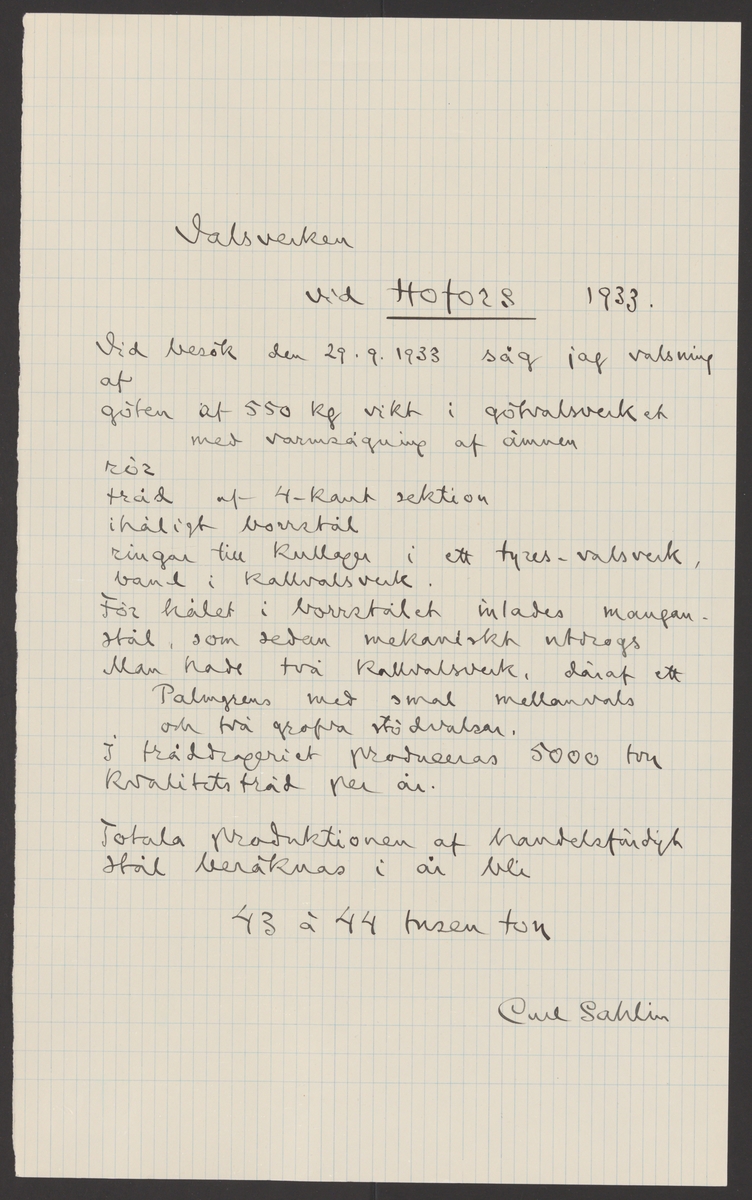 Valsverken
vid Hofors 1933.
Vid besök den 29.9.1933 såg jag valsning
af
göten af 550 kg vikt i götvalsverket
med varmsågning af ämnen
rör
tråd af 4-kant sektion
ihåligt borrstål
ringar till kullager i ett tyres-valsverk,
band i kallvalsverk.
För hålet i borrstålet inlades mangan-
stål, som sedan mekaniskt utdrogs
Man hade två kallvalsverk, däraf ett
Palmgrens med smal mellanvals
och två grofva stödvalsar.
I tråddrageriet produceras 5000 ton
kvalitetstråd per år.
Totala produktionen af handelsfärdigt
stål beräknas i år bli
43 à 44 tusen ton
Carl Sahlin